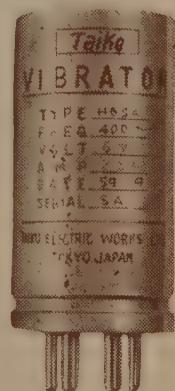 Taiko
VIBRATOR
TYPE
FREQ 400
VOLT 6V
AMP
DATE 59 9
SERIAL SA
ELECTRIC WORKS
TOKYO JAPAN